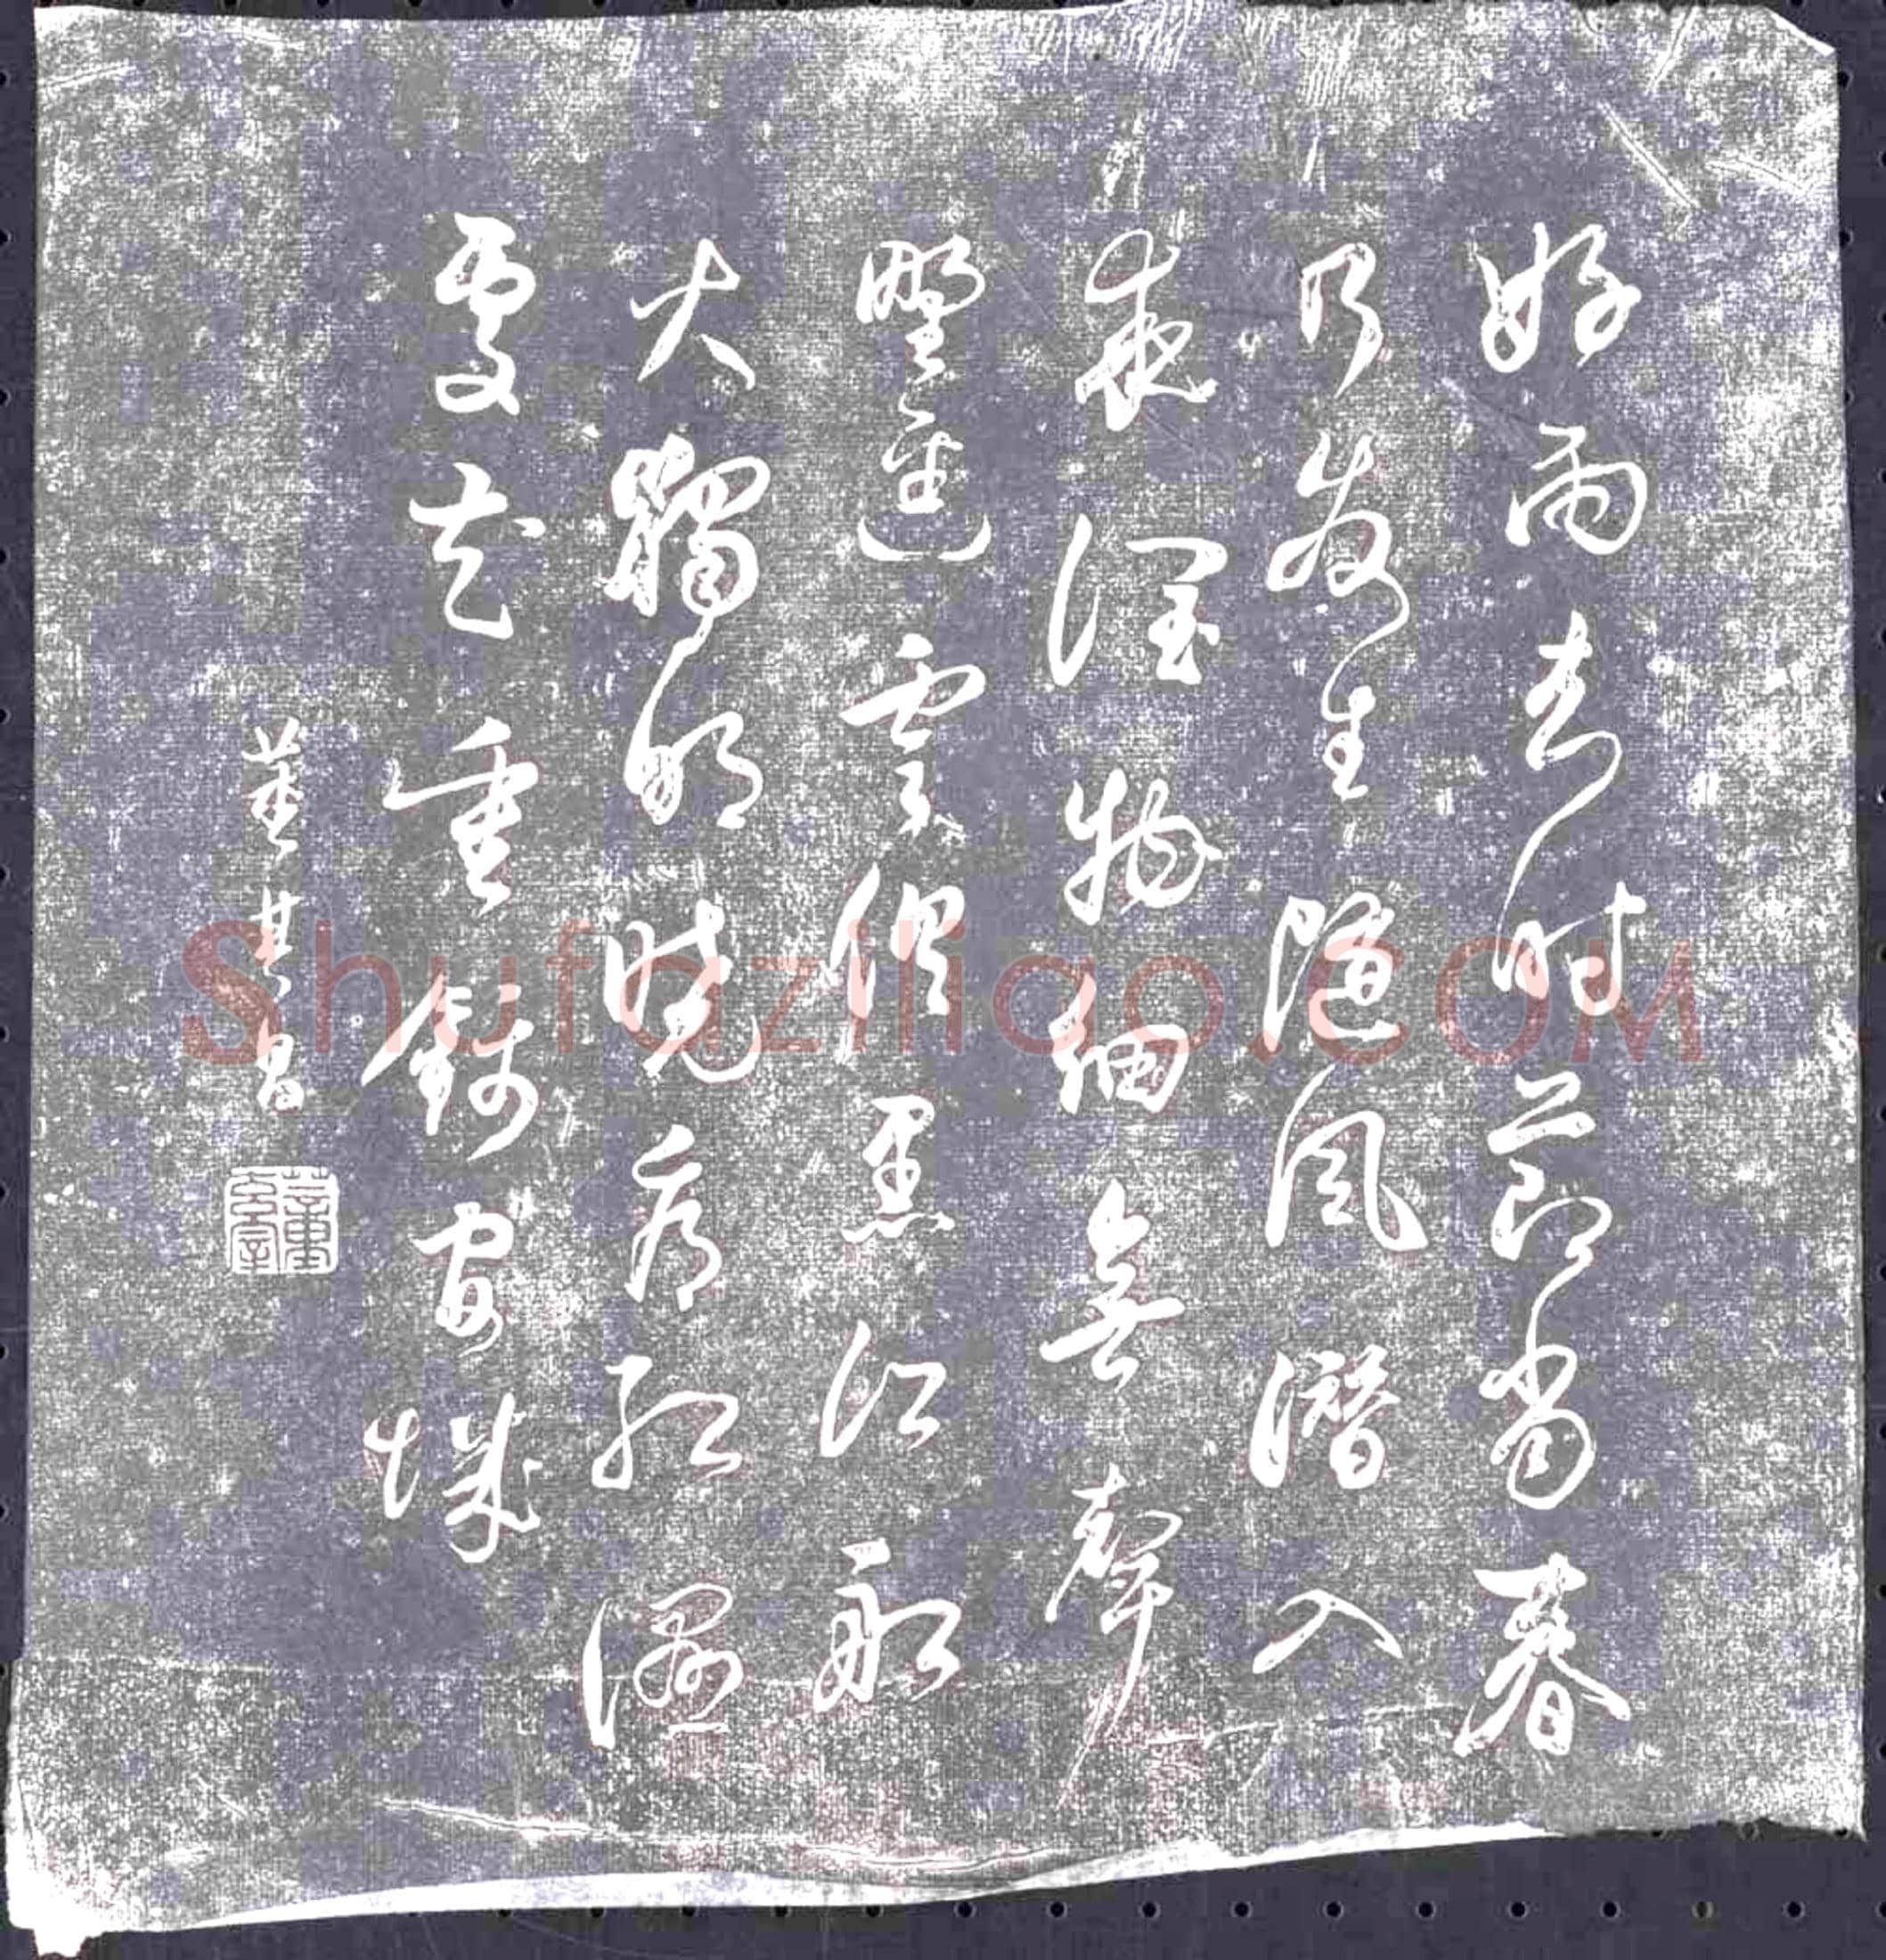 好雨知時節當春
乃發生隨風潛入
夜潤物細無聲
野徑雲俱黑江船
火獨明曉看紅濕
處花重錦官城
董其昌
Shufaziliao.COM